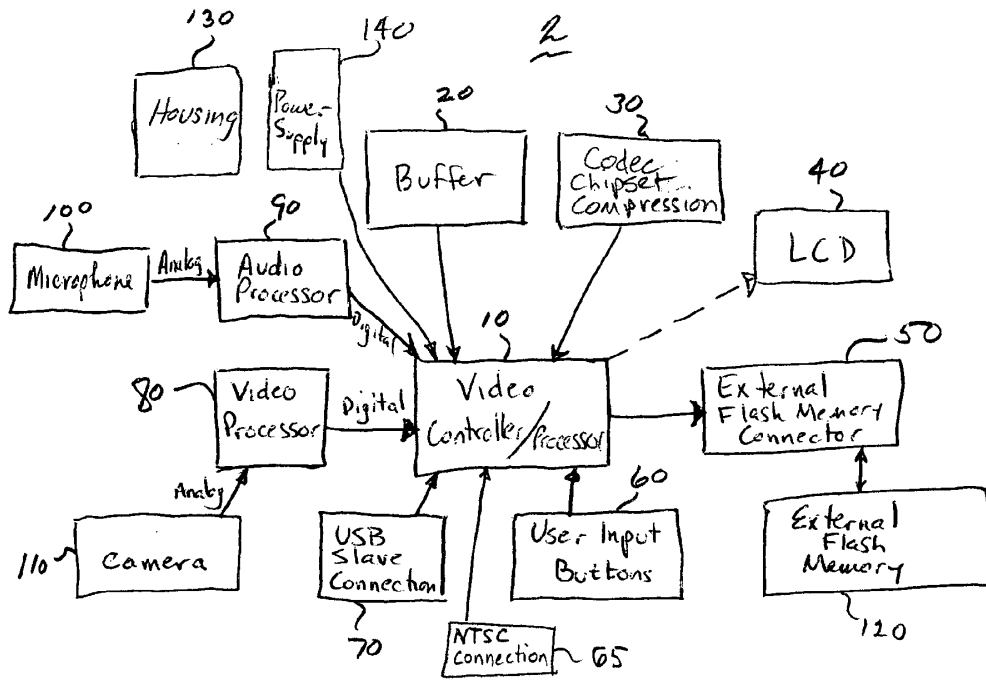 130
140
2
Housing
Power
Supply
20
Buffer
30
Codec
Chipset
Compression
40
LCD
100
Microphone
Analog
90
Audio
Processor
Digital
10
Video
Controller/Processor
50
External
Flash Memory
Connector
80
Video
Processor
Digital
Analog
110
Camera
USB
Slave
Connection
70
60
User Input
Buttons
External
Flash
Memory
120
NTSC
Connection
65